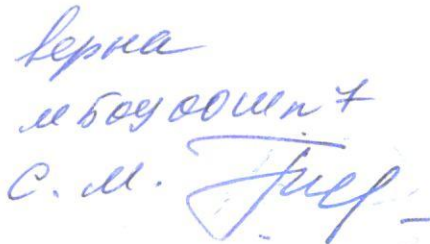 верна
МБОУООШп7
С. М.